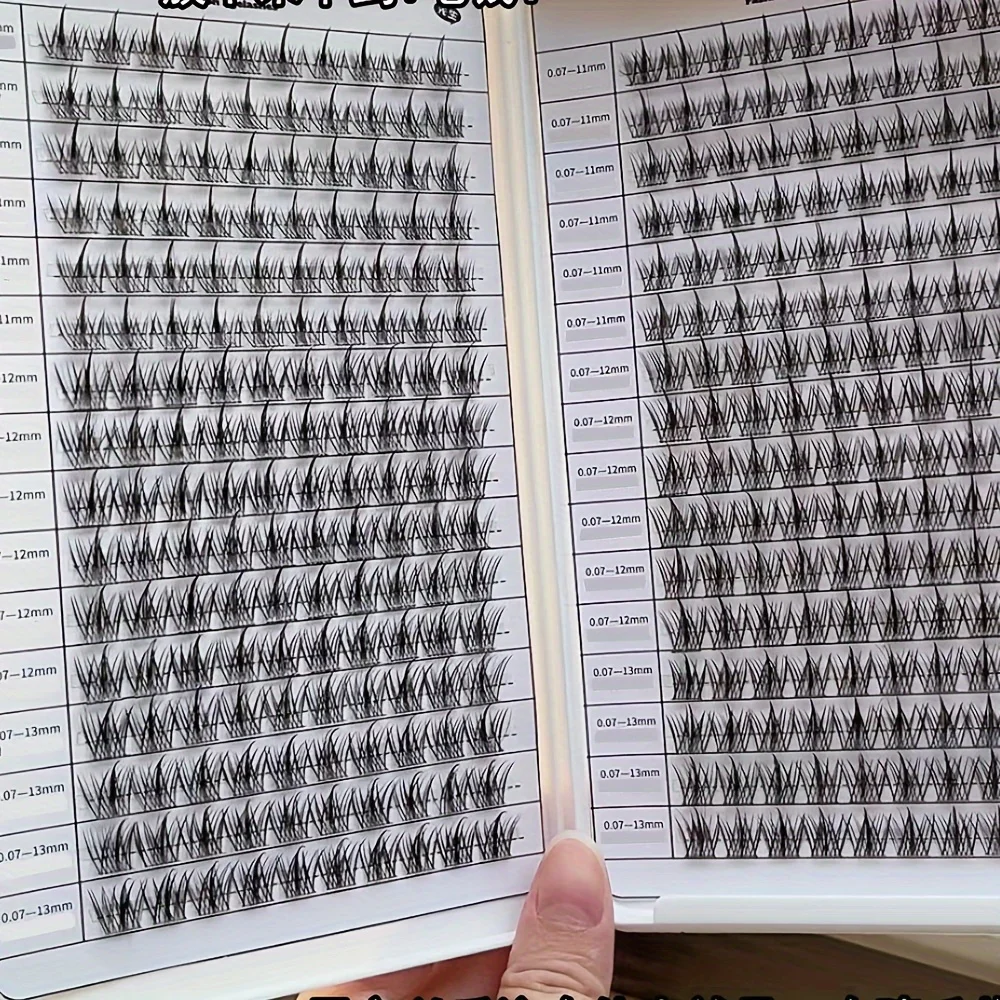 mm
mm
mm
1mm
1mm
11mm
12mm
-12mm
-12mm
7—12mm
07—12mm
07—12mm
07—13mm
0.07—13mm
0.07—13mm
0.07—13mm
0.07—11mm
0.07—11mm
0.07—11mm
0.07—11mm
0.07—11mm
0.07—11mm
0.07—12mm
0.07—12mm
0.07—12mm
0.07—12mm
0.07—12mm
0.07—12mm
0.07—13mm
0.07—13mm
0.07—13mm
0.07—13mm